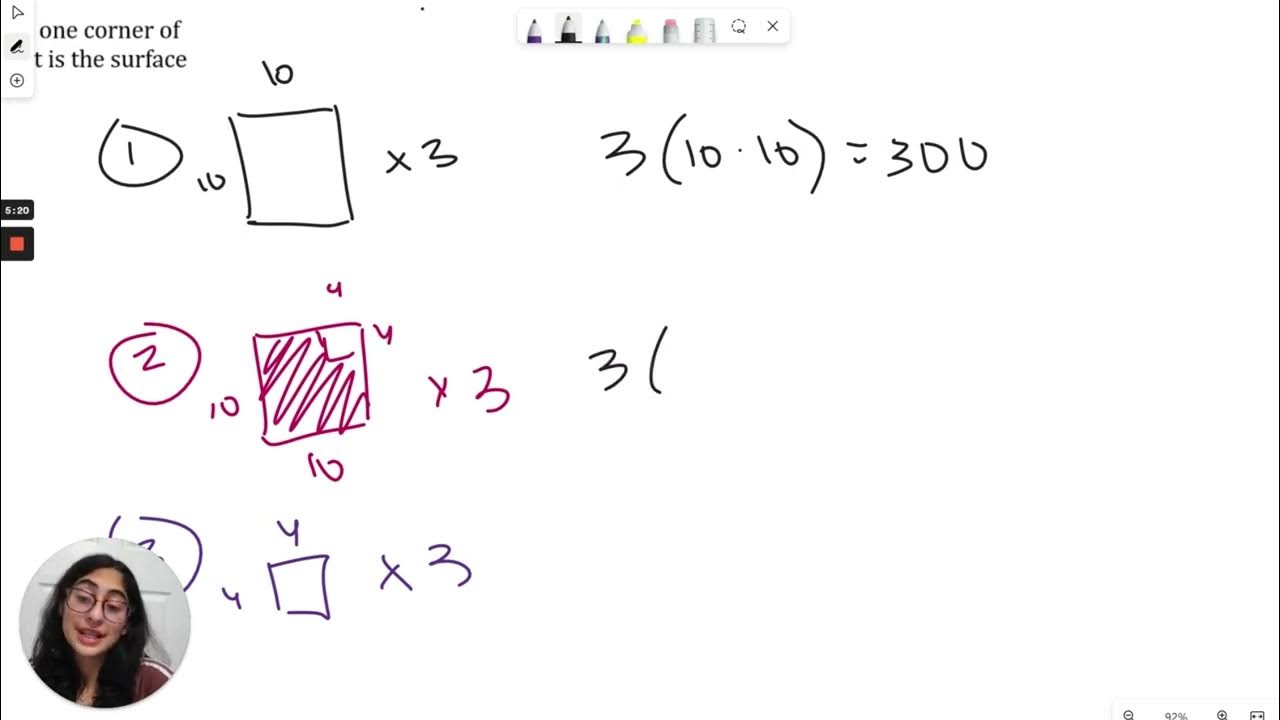 one corner of
t is the surface
10
1
10
x 3
3(10·10) = 300
5:20
4
4
2
10
x 3
3(
10
4
4
x 3
92%